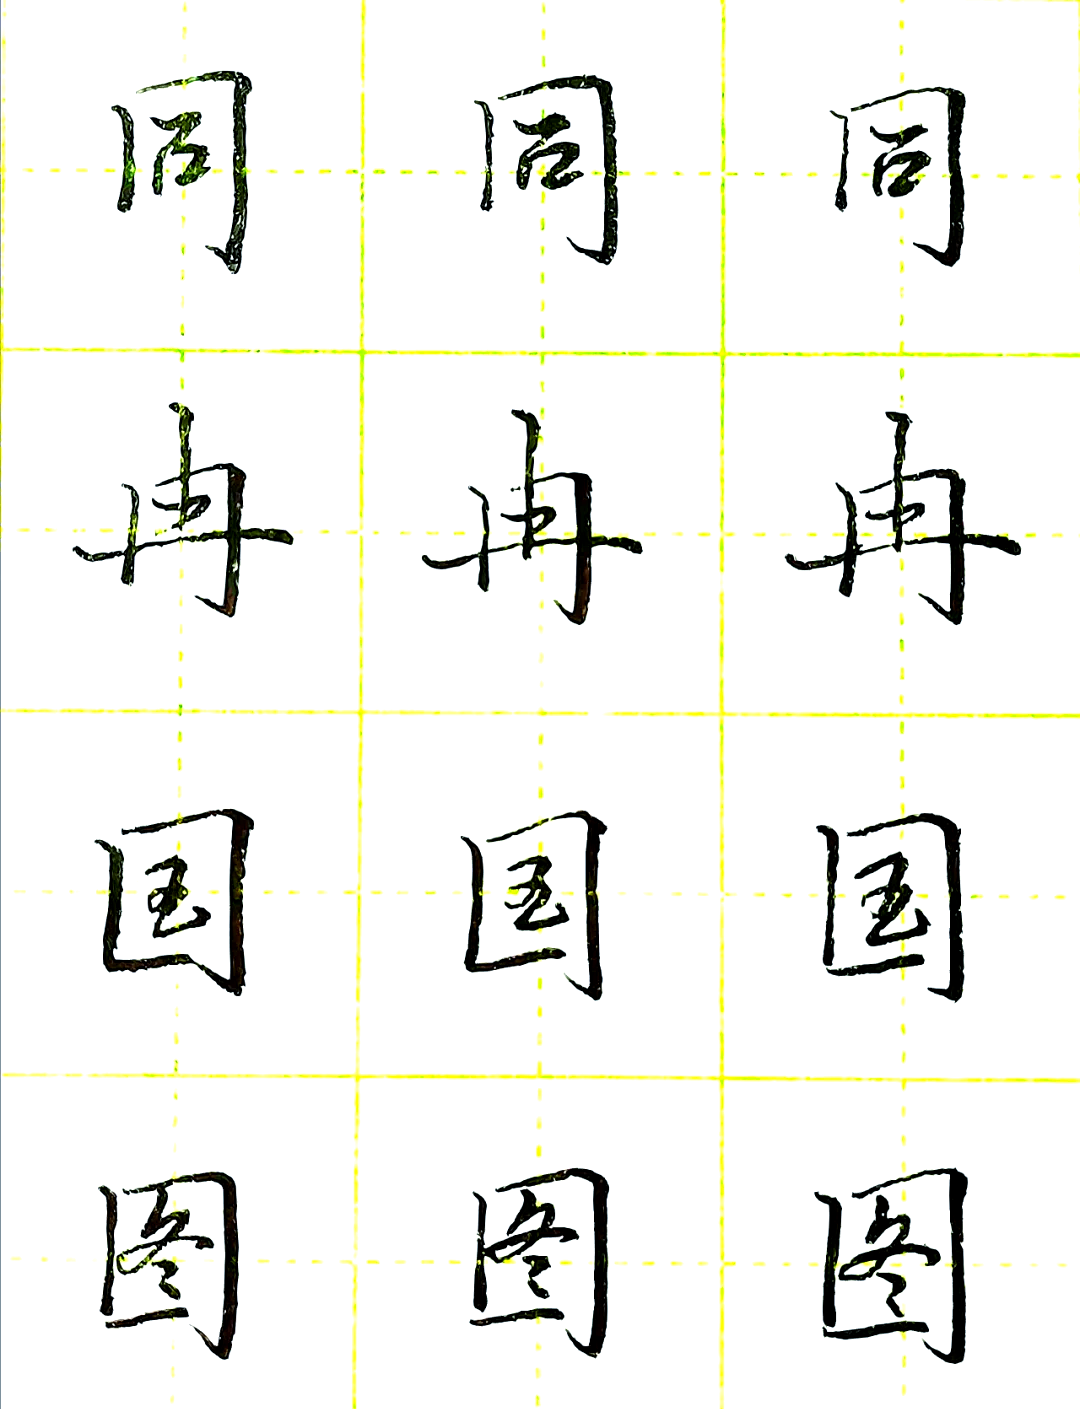 同同同
冉冉冉
国国国
图图图